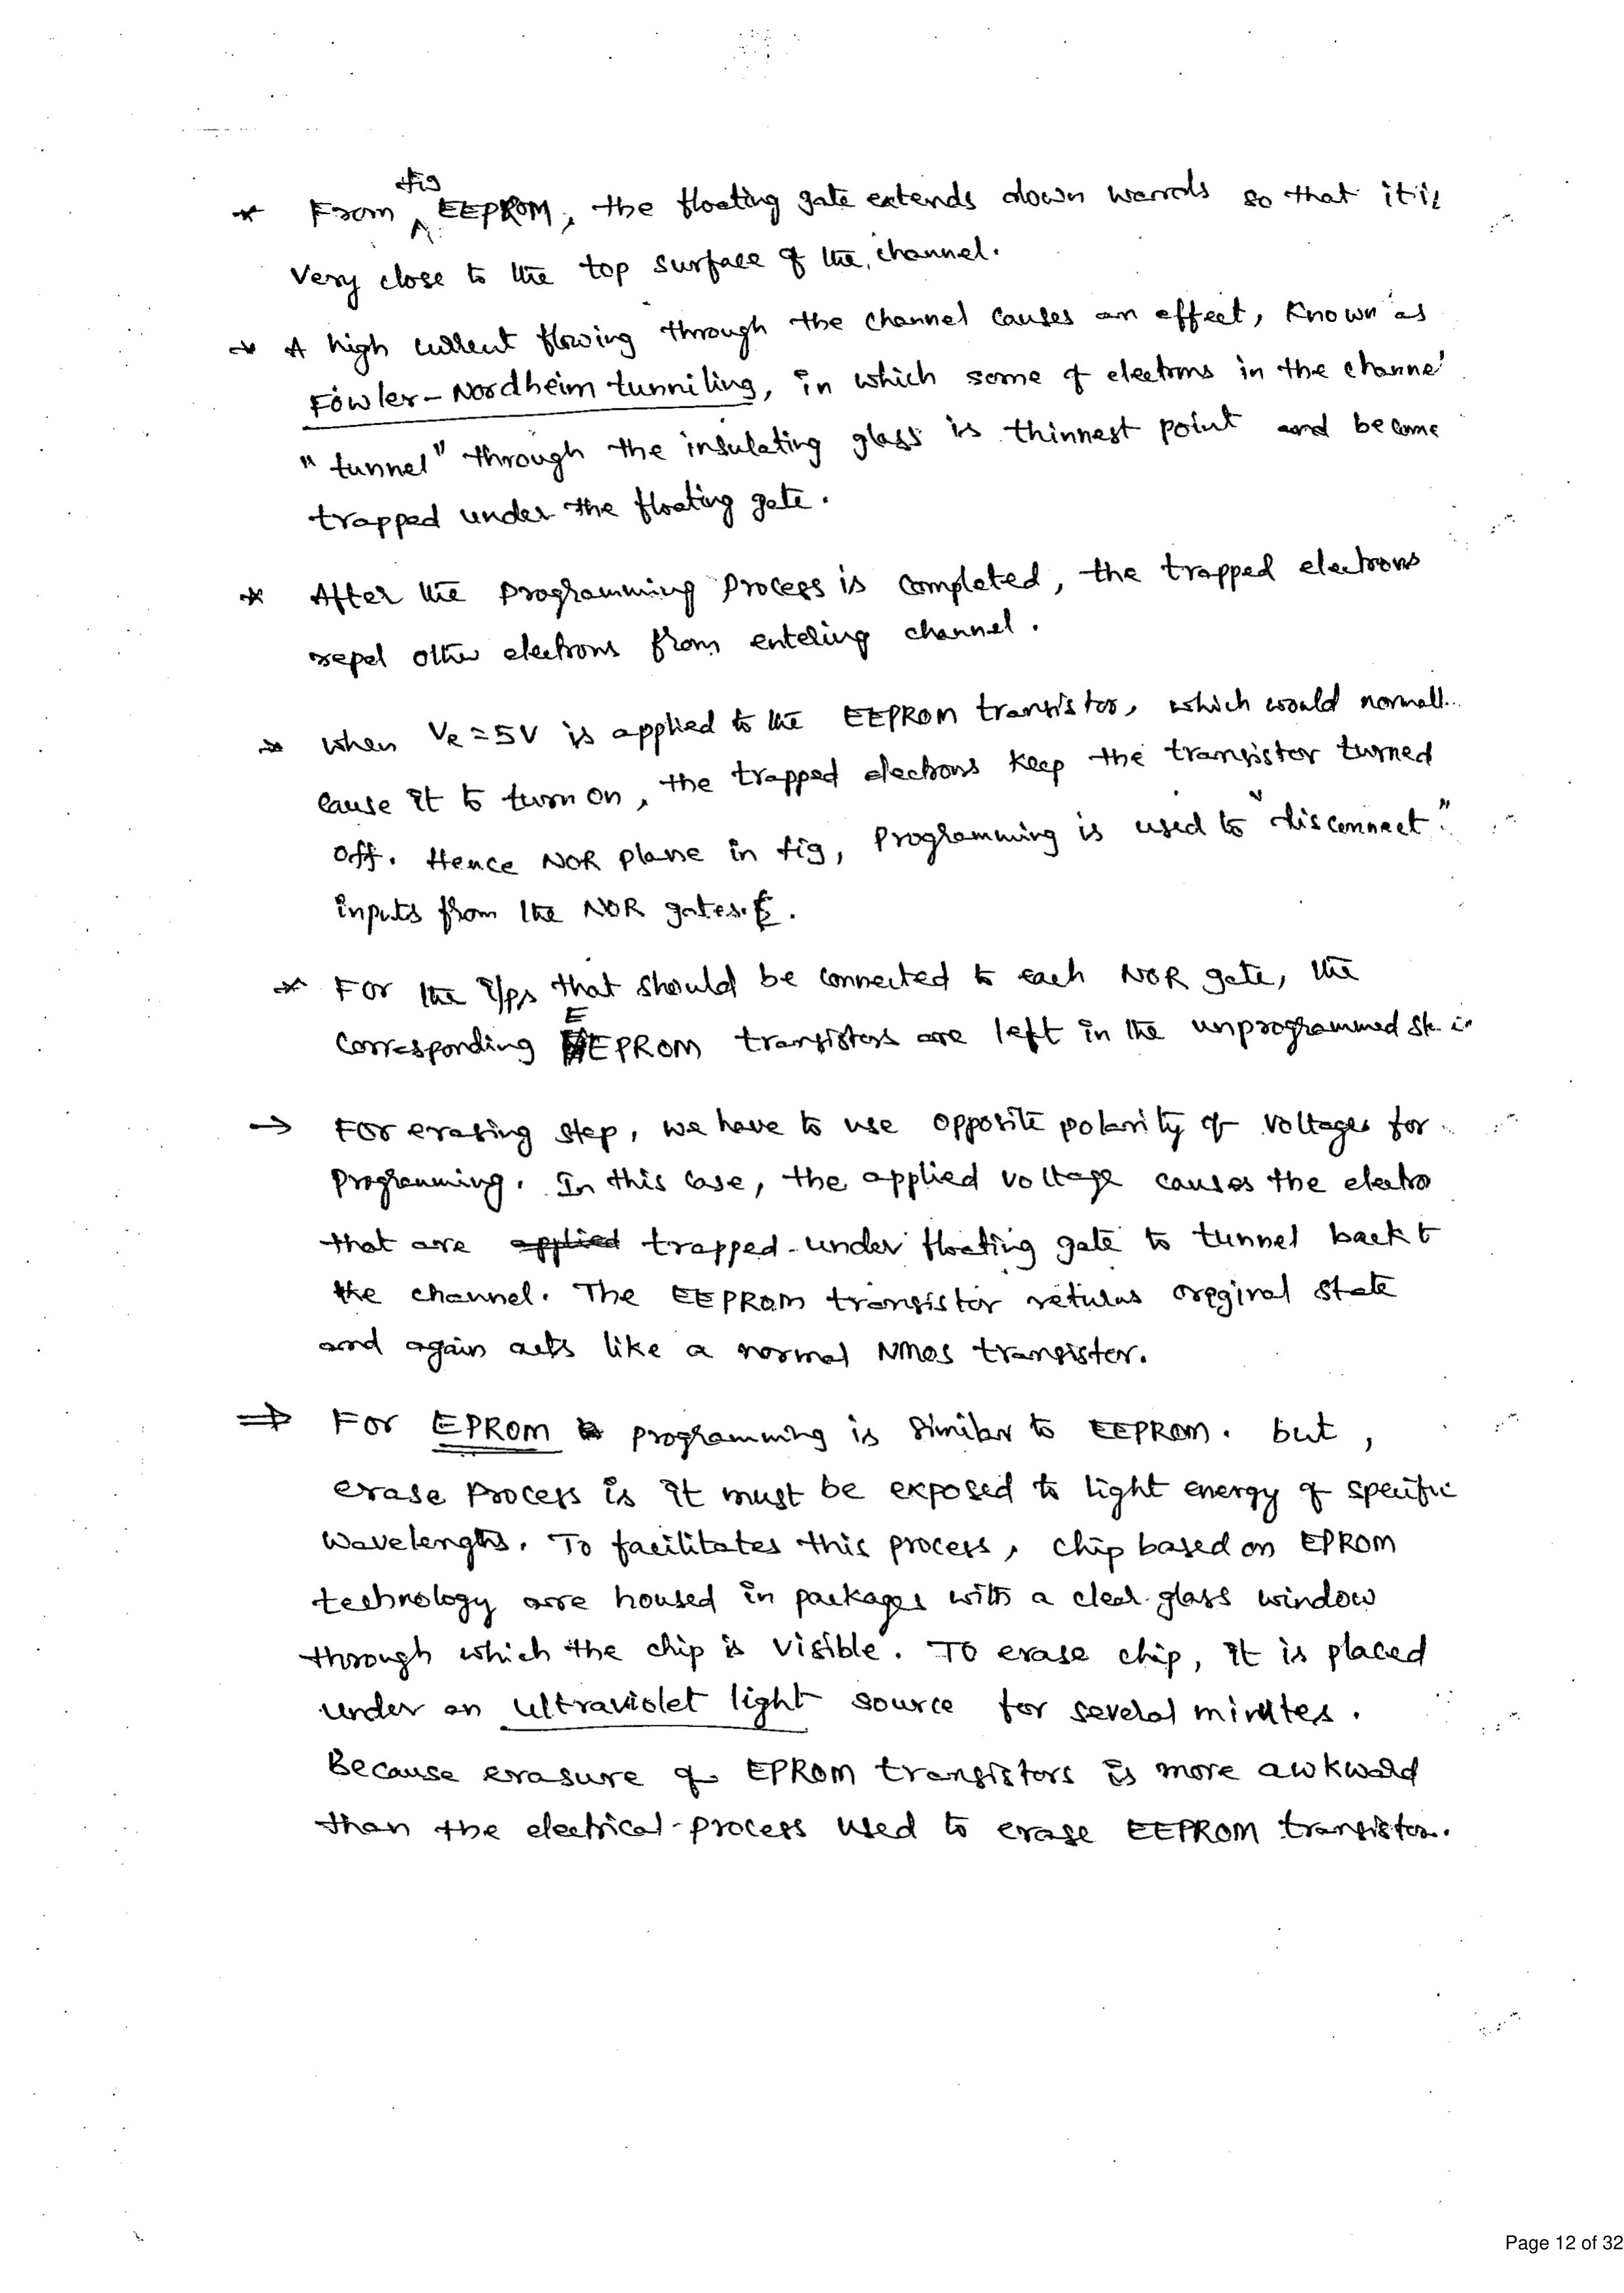 fig
* From ^ EEPROM, the floating gate extends down wards so that it is
Very close to the top surface of the channel.
* A high current flowing through the channel causes an effect, Known as
Fowler-Nordheim tunniling, in which some of electrons in the channel
" tunnel" through the insulating glass is thinnest point and become
trapped under the floating gate.
* After the programming Process is completed, the trapped electrons
repel other electrons from entering channel.
* When Ve = 5V is applied to the EEPROM transistor, which would normall
cause it to turn on, the trapped electrons keep the transistor turned
off. Hence NOR plane in fig, Programming is used to "disconnect"
inputs from the NOR gates.
* For the i/ps that should be connected to each NOR gate, the
corresponding EEPROM transistors are left in the unprogrammed
→ For erasing step, we have to use opposite polarity of voltages for
Programming. In this case, the applied voltage causes the electro
that are applied trapped under floating gate to tunnel back t
the channel. The EEPROM transistor returns original state
and again acts like a normal NMOS transister.
⇒ For EPROM programming is similar to EEPROM. but,
erase process is it must be exposed to light energy of specific
wavelengths. To facilitates this process, chip based on EPROM
technology are housed in packages with a clear glass window
through which the chip is visible. To erase chip, it is placed
under an ultraviolet light source for several minutes.
Because erasure of EPROM transistors is more awkward
than the electrical process used to erase EEPROM transistor.
Page 12 of 32